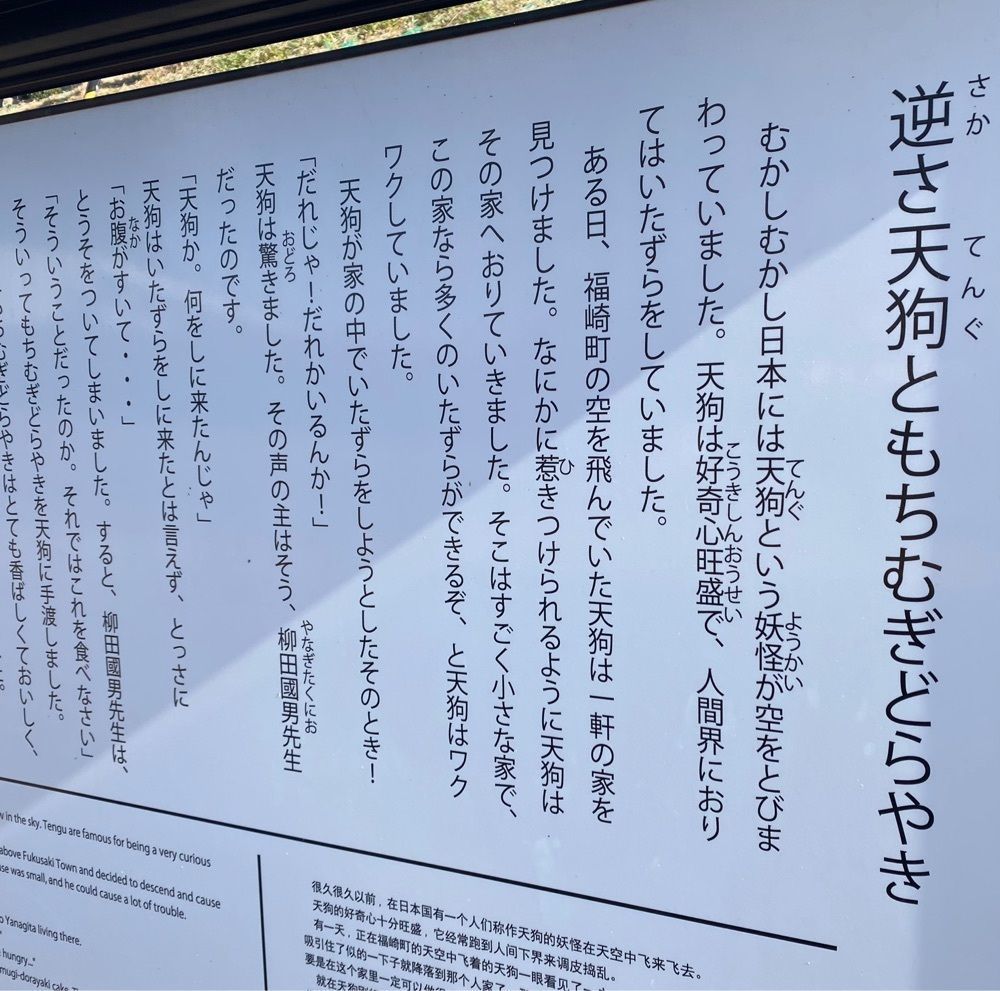 逆さ天狗ともちむぎどらやき
さか
てんぐ
むかしむかし日本には天狗という妖怪が空をとびま
てんぐ
ようかい
わっていました。天狗は好奇心旺盛で、人間界におり
こうきしんおうせい
てはいたずらをしていました。
ある日、福崎町の空を飛んでいた天狗は一軒の家を
見つけました。なにかに惹きつけられるように天狗は
ひ
その家へおりていきました。そこはすごく小さな家で、
この家なら多くのいたずらができるぞ、と天狗はワク
ワクしていました。
天狗が家の中でいたずらをしようとしたそのとき！
「だれじゃ！だれかいるんか！」
天狗は驚きました。その声の主はそう、柳田國男先生
おどろ
やなぎたくにお
だったのです。
「天狗か。何をしに来たんじゃ」
天狗はいたずらをしに来たとは言えず、とっさに
「お腹がすいて・・・」
なか
とうそをついてしまいました。すると、柳田國男先生は、
「そういうことだったのか。それではこれを食べなさい」
そういってもちむぎどらやきを天狗に手渡しました。
むぎどらやきはとても香ばしくておいしく、
w in the sky. Tengu are famous for being a very curious
above Fukusaki Town and decided to descend and cause
use was small, and he could cause a lot of trouble.
o Yanagita living there.
hungry..."
mugi-dorayaki cake.
很久很久以前，在日本国有一个人们称作天狗的妖怪在天空中飞来飞去。
天狗的好奇心十分旺盛，它经常跑到人间下界来调皮捣乱。
有一天，正在福崎町的天空中飞着的天狗一眼看见了一
吸引住了似的一下子就降落到那个人家了。
要是在这个家里一定可以做很
就在天狗刚